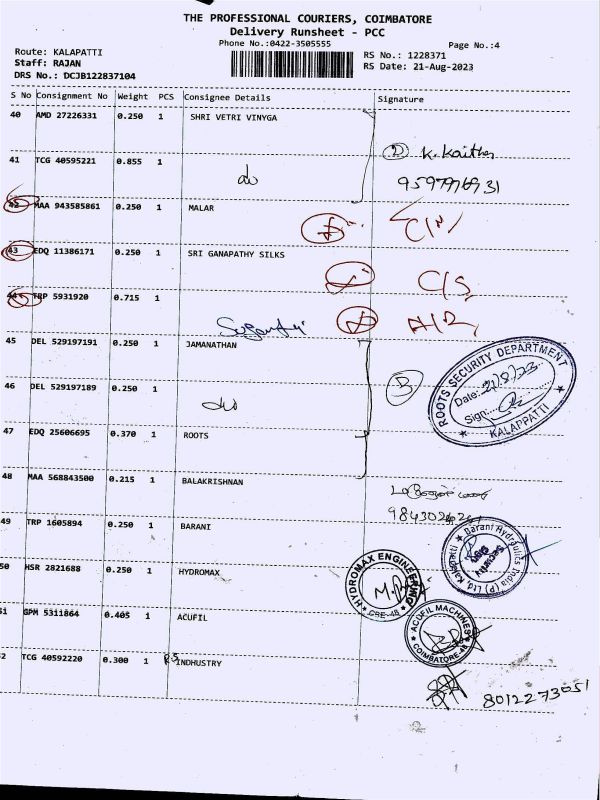 THE PROFESSIONAL COURIERS, COIMBATORE
Delivery Runsheet - PCC
Phone No.:0422-3505555
Page No.:4
Route: KALAPATTI
Staff: RAJAN
DRS No.: DCJB122837104
RS No.: 1228371
RS Date: 21-Aug-2023
S No Consignment No Weight PCS Consignee Details Signature
40 AMD 27226331 0.250 1 SHRI VETRI VINYGA
② K. Kaithan
41 TCG 40595221 0.855 1 do
42 MAA 943585861 0.250 1 MALAR
43 EDQ 11386171 0.250 1 SRI GANAPATHY SILKS
C/S
44 TRP 5931920 0.715 1
45 DEL 529197191 0.250 1 JAMANATHAN
46 DEL 529197189 0.250 1 do
ROOTS SECURITY DEPARTMENT
Date: 21/8/23
Sign:
KALAPPATTI
47 EDQ 25606695 0.370 1 ROOTS
48 MAA 568843500 0.215 1 BALAKRISHNAN
49 TRP 1605894 0.250 1 BARANI
Barani Hydraulics India (P) Ltd. Kalapatti
Security
50 HSR 2821688 0.250 1 HYDROMAX
HYDROMAX ENGINEERING
CBE-48
51 GPM 5311864 0.405 1 ACUFIL
ACUFIL MACHINES
COIMBATORE-48
52 TCG 40592220 0.300 1 R.S INDHUSTRY
8012273051